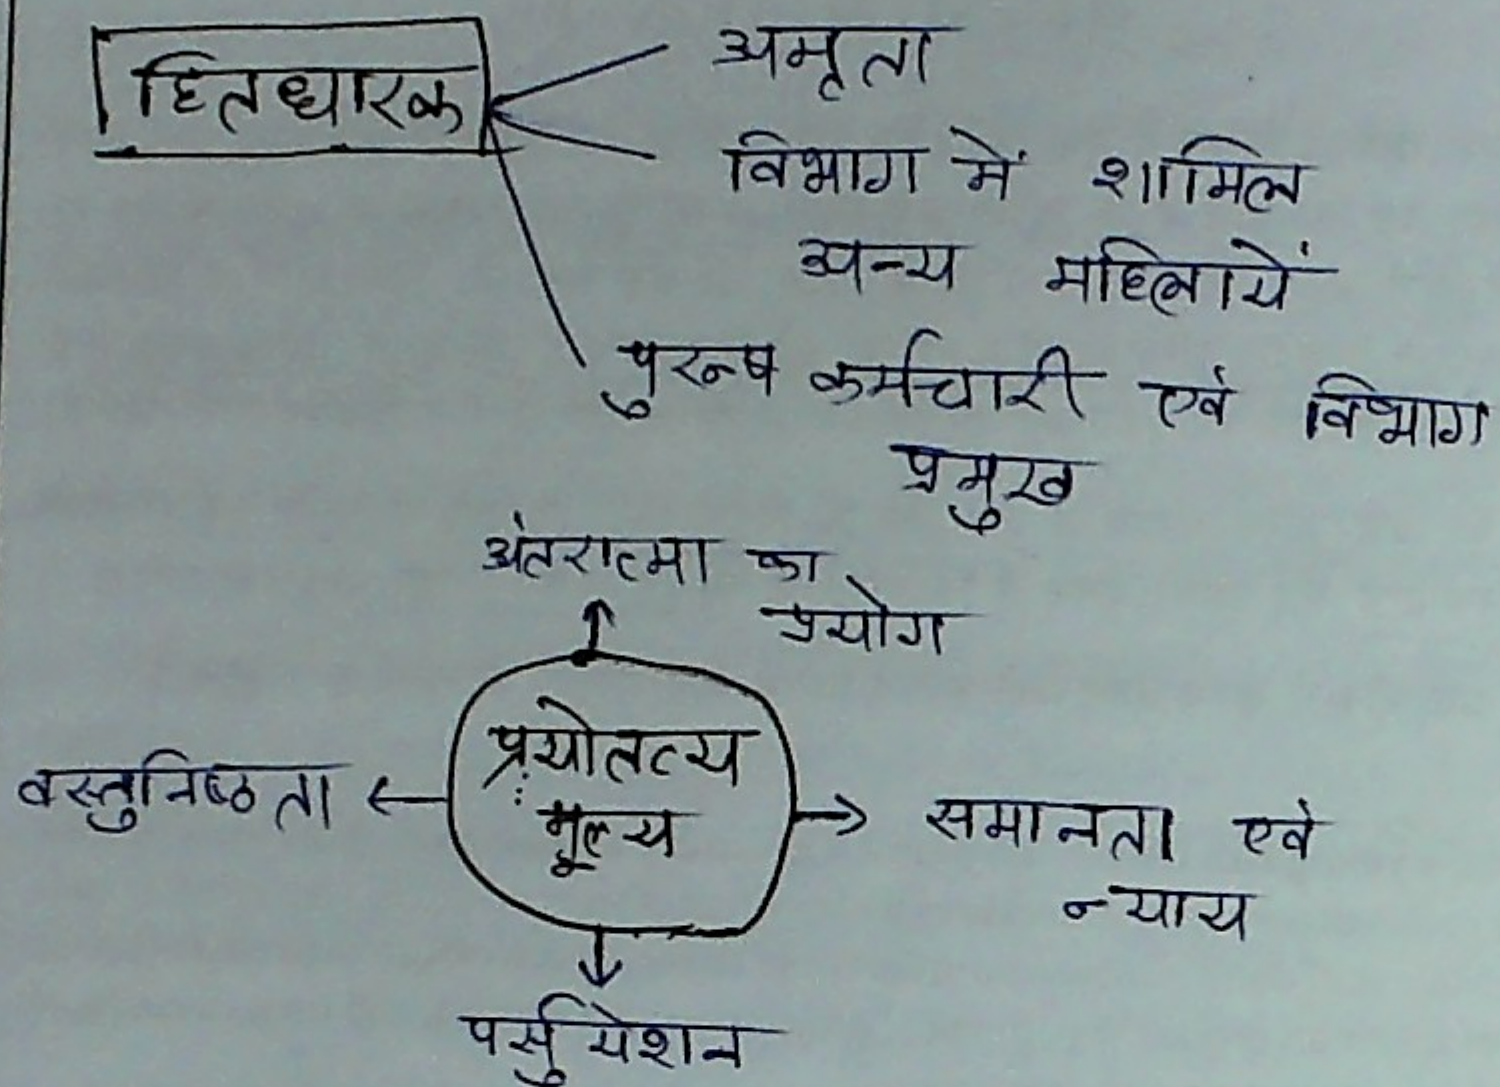 हितधारक
अमृता
विभाग में शामिल
अन्य महिलायें
पुरूष कर्मचारी एवं विभाग
प्रमुख
अंतरात्मा का
प्रयोग
प्रयोतत्य
मूल्य
वस्तुनिष्ठता
समानता एवं
न्याय
पर्सुयेशन